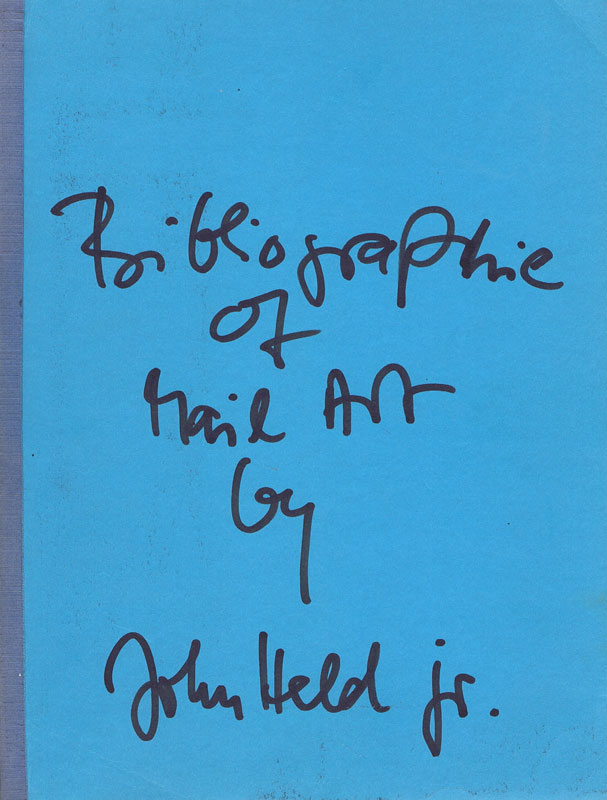 Bibliographie
of
Mail Art
by
John Held jr.